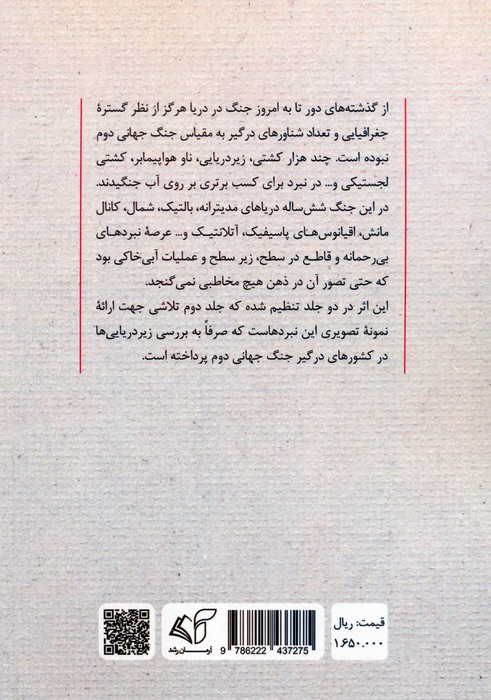 از گذشته‌های دور تا به امروز جنگ در دریا هرگز از نظر گسترهٔ
جغرافیایی و تعداد شناورهای درگیر به مقیاس جنگ جهانی دوم
نبوده است. چند هزار کشتی، زیردریایی، ناو هواپیمابر، کشتی
لجستیکی و... در نبرد برای کسب برتری بر روی آب جنگیدند.
در این جنگ شش‌ساله دریاهای مدیترانه، بالتیک، شمال، کانال
مانش، اقیانوس‌های پاسیفیک، آتلانتیک و... عرصهٔ نبردهای
بی‌رحمانه و قاطع در سطح، زیر سطح و عملیات آبی‌خاکی بود
که حتی تصور آن در ذهن هیچ مخاطبی نمی‌گنجد.
این اثر در دو جلد تنظیم شده که جلد دوم تلاشی جهت ارائهٔ
نمونهٔ تصویری این نبردهاست که صرفاً به بررسی زیردریایی‌ها
در کشورهای درگیر جنگ جهانی دوم پرداخته است.
قیمت: ریال
۱.۶۵۰.۰۰۰
9 786222 437275
آرمـان رشد